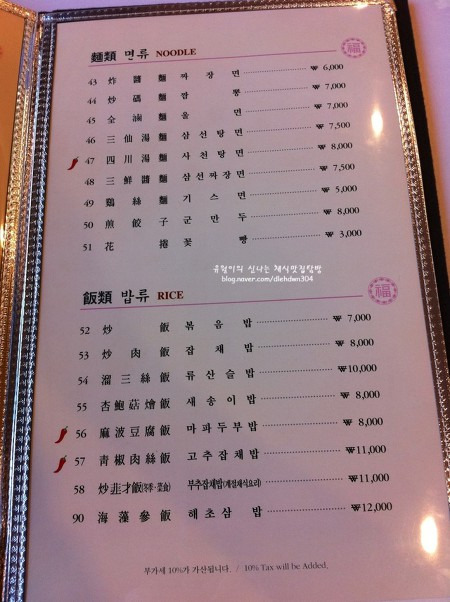 麵類 면류 NOODLE 福
43 炸醬麵 짜장면 ₩ 6,000
44 炒碼麵 짬뽕 ₩ 7,000
45 全滷麵 울면 ₩ 7,000
46 三仙湯麵 삼선탕면 ₩ 7,500
47 四川湯麵 사천탕면 ₩ 8,000
48 三鮮醬麵 삼선짜장면 ₩ 7,500
49 鷄絲麵 기스면 ₩ 5,000
50 煎餃子 군만두 ₩ 8,000
51 花捲 꽃빵 ₩ 3,000
유형미의 신나는 채식맛집탐방
blog.naver.com/dlehdwn304
飯類 밥류 RICE 福
52 炒飯 볶음밥 ₩ 7,000
53 炒肉飯 잡채밥 ₩ 8,000
54 溜三絲飯 류산슬밥 ₩10,000
55 杏鮑菇燴飯 새송이밥 ₩ 8,000
56 麻波豆腐飯 마파두부밥 ₩ 8,000
57 靑椒肉絲飯 고추잡채밥 ₩11,000
58 炒韭才飯(冬季·菜食) 부추잡채밥(계절채식요리) ₩11,000
90 海藻參飯 해초삼밥 ₩12,000
부가세 10%가 가산됩니다. / 10% Tax will be Added.